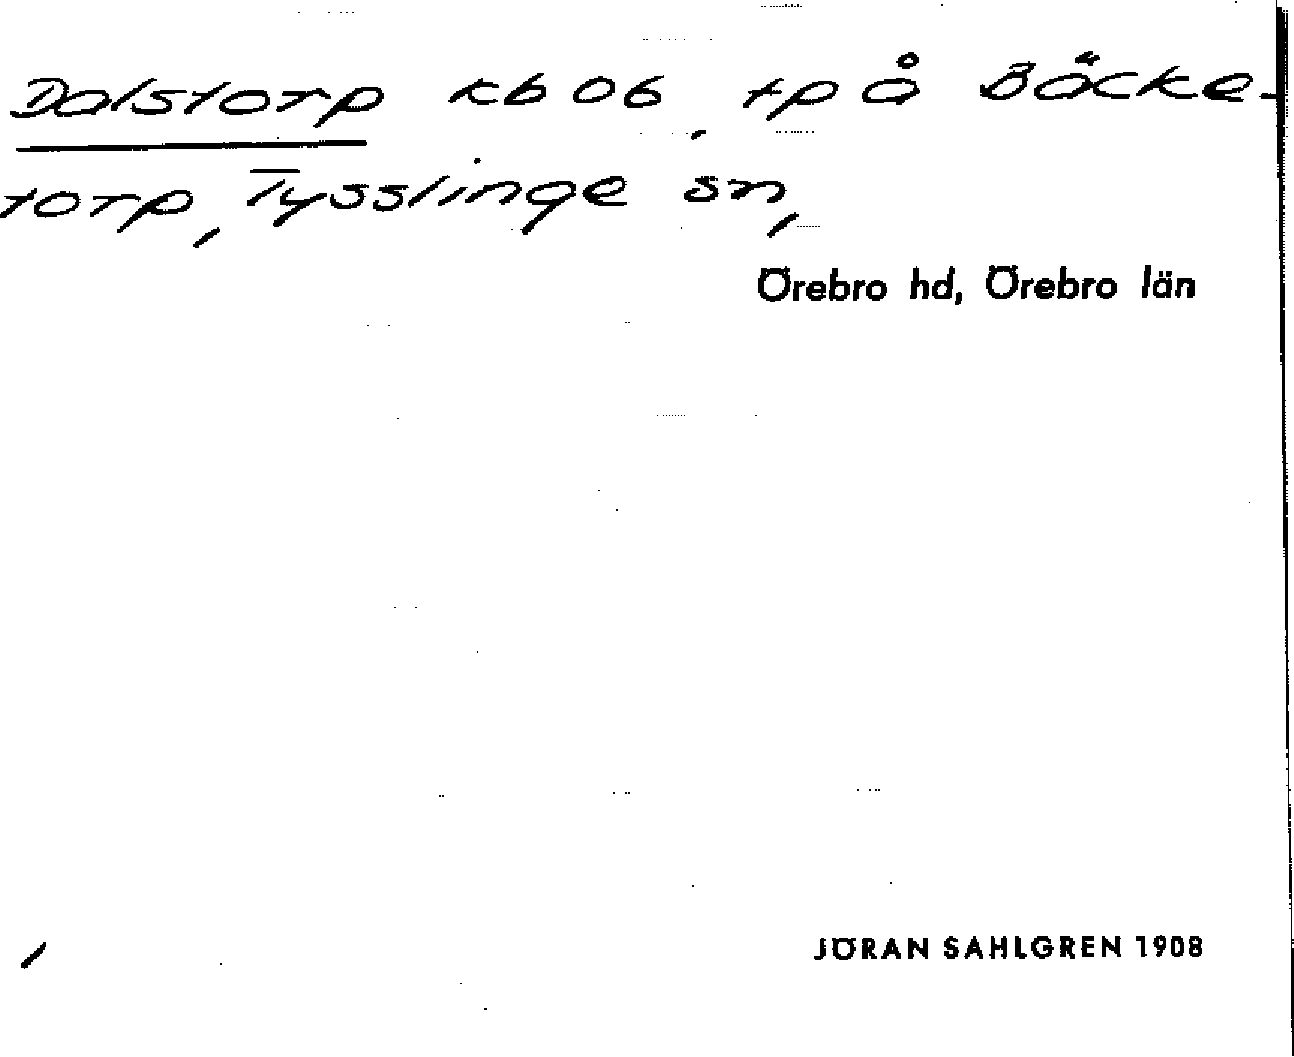 Dalstorp kb 06, tp å Bäcke-
torp, Tysslinge sn,
Örebro hd, Örebro län
JÖRAN SAHLGREN 1908